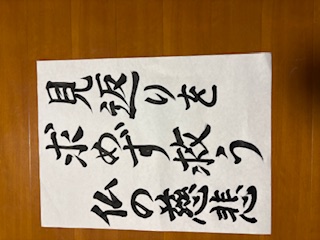 見返りを
求めず救う
仏の慈悲